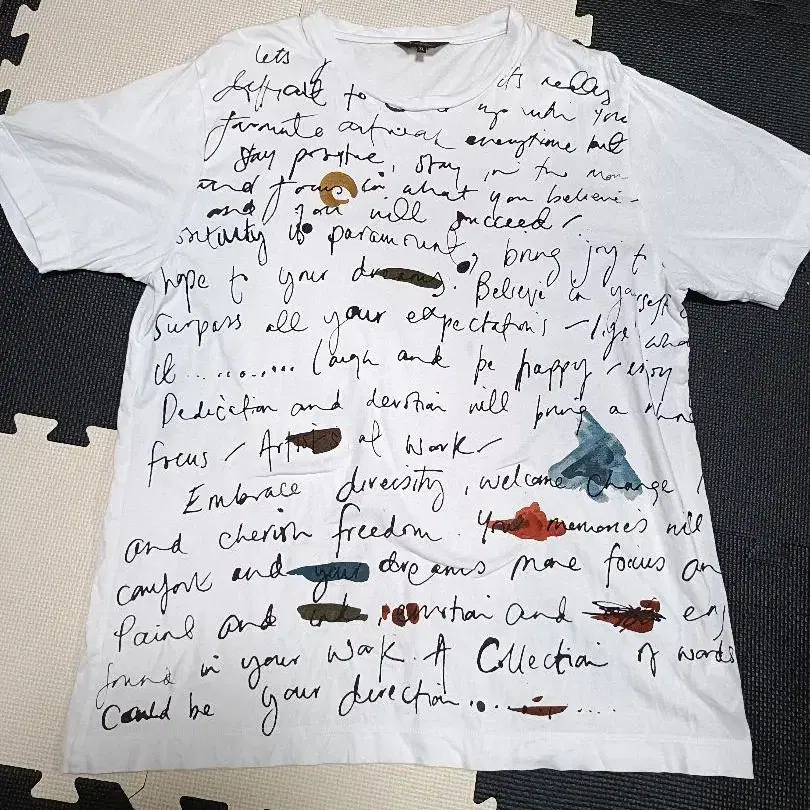 lets its really
difficult to up with you
favourite artwork everytime but
stay positive, stay in the mom
and focus in what you believe -
and you will succeed /
is paramount, bring joy t
hope to your dreams. Believe in yourself
Surpass all your expectations - life wha
it .......... laugh and be happy / enjoy
Dedication and devotion will bring a
focus / Artists at work /
Embrace diversity, welcome change /
and cherish freedom. Your memories will
comfort and your dreams more focus an
Paint and ink, emotion and en
found in your work. A Collection of words
Could be your direction.........